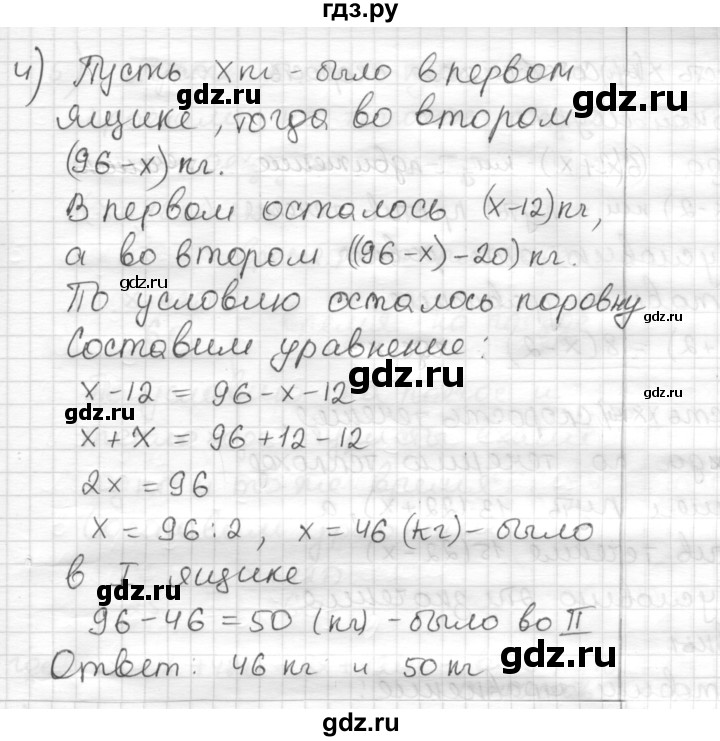 гдз.ру
4) Пусть x кг - было в первом
gdz.ru
gdz.ru
ящике, тогда во втором
(96-x) кг.
gdz.ru
В первом осталось (x-12) кг,
а во втором ((96-x)-20) кг.
gdz.ru
По условию осталось поровну
gdz.ru
Составим уравнение:
gdz.ru
x-12 = 96-x-12
gdz.ru
gdz.ru
x+x = 96+12-12
2x = 96
x = 96:2, x = 46 (кг) - было
в I ящике
gdz.ru
96-46 = 50 (кг) - было во II
gdz.ru
Ответ: 46 кг и 50 кг
gdz.ru